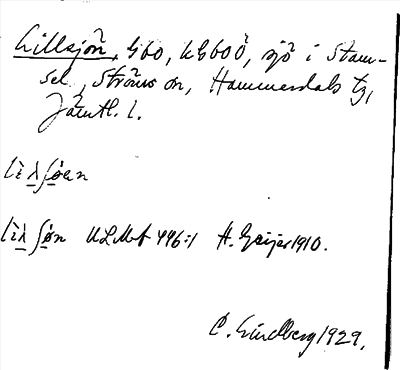 Lillsjön, Gbo, kGboö, sjö i Stam-
sel, Ströms sn, Hammerdals tg,
Jämtl. l.
lìλʃøan
lìλʃøn ULMA 446:1 H. Geijer 1910.
C. Lindberg 1929.